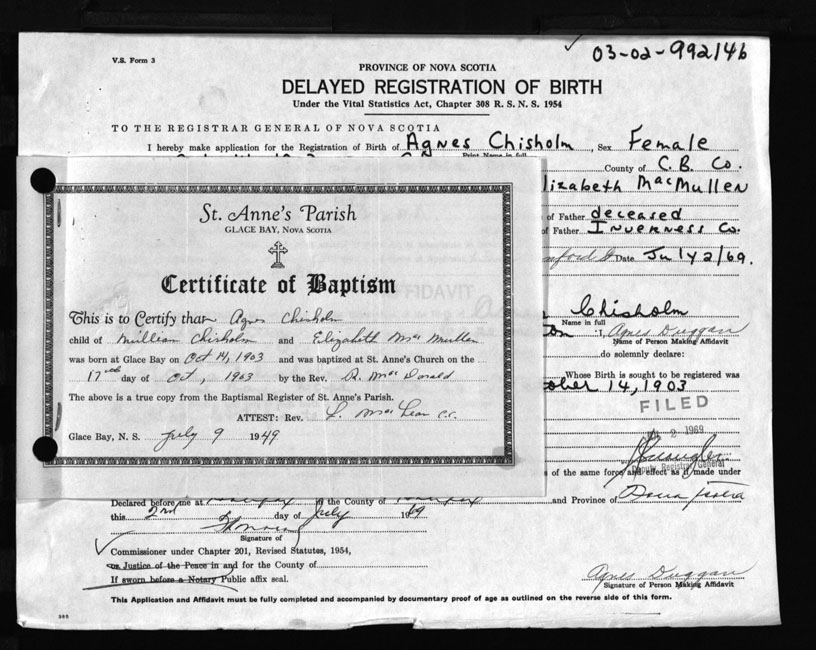 V.S. Form 3
03-02-992146
PROVINCE OF NOVA SCOTIA
DELAYED REGISTRATION OF BIRTH
Under the Vital Statistics Act, Chapter 308 R. S. N. S. 1954
TO THE REGISTRAR GENERAL OF NOVA SCOTIA
I hereby make application for the Registration of Birth of Agnes Chisholm, Sex Female
Print Name in full
County of C.B. Co.
lizabeth MacMullen
of Father deceased
of Father Inverness Co.
Date July 2/69.
St. Anne's Parish
GLACE BAY, NOVA SCOTIA
Certificate of Baptism
This is to Certify that Agnes Chisholm
child of William Chisholm and Elizabeth Mac Mullen
was born at Glace Bay on Oct 14, 1903 and was baptized at St. Anne's Church on the
17th day of Oct, 1903 by the Rev. R. Mac Donald
The above is a true copy from the Baptismal Register of St. Anne's Parish.
ATTEST: Rev. L. Mac Lean c.c.
Glace Bay, N. S. July 9 1949
AFFIDAVIT
Chisholm
Name in full
I, Agnes Duggan
Name of Person Making Affidavit
do solemnly declare:
Whose Birth is sought to be registered was
ober 14, 1903
FILED
2 1969
Deputy Registrar General
of the same force and effect as if made under
Declared before me at Halifax in the County of Halifax and Province of Nova Scotia
this 2nd day of July 1969
Signature of
Commissioner under Chapter 201, Revised Statutes, 1954,
or Justice of the Peace in and for the County of
If sworn before a Notary Public affix seal.
Agnes Duggan
Signature of Person Making Affidavit
This Application and Affidavit must be fully completed and accompanied by documentary proof of age as outlined on the reverse side of this form.